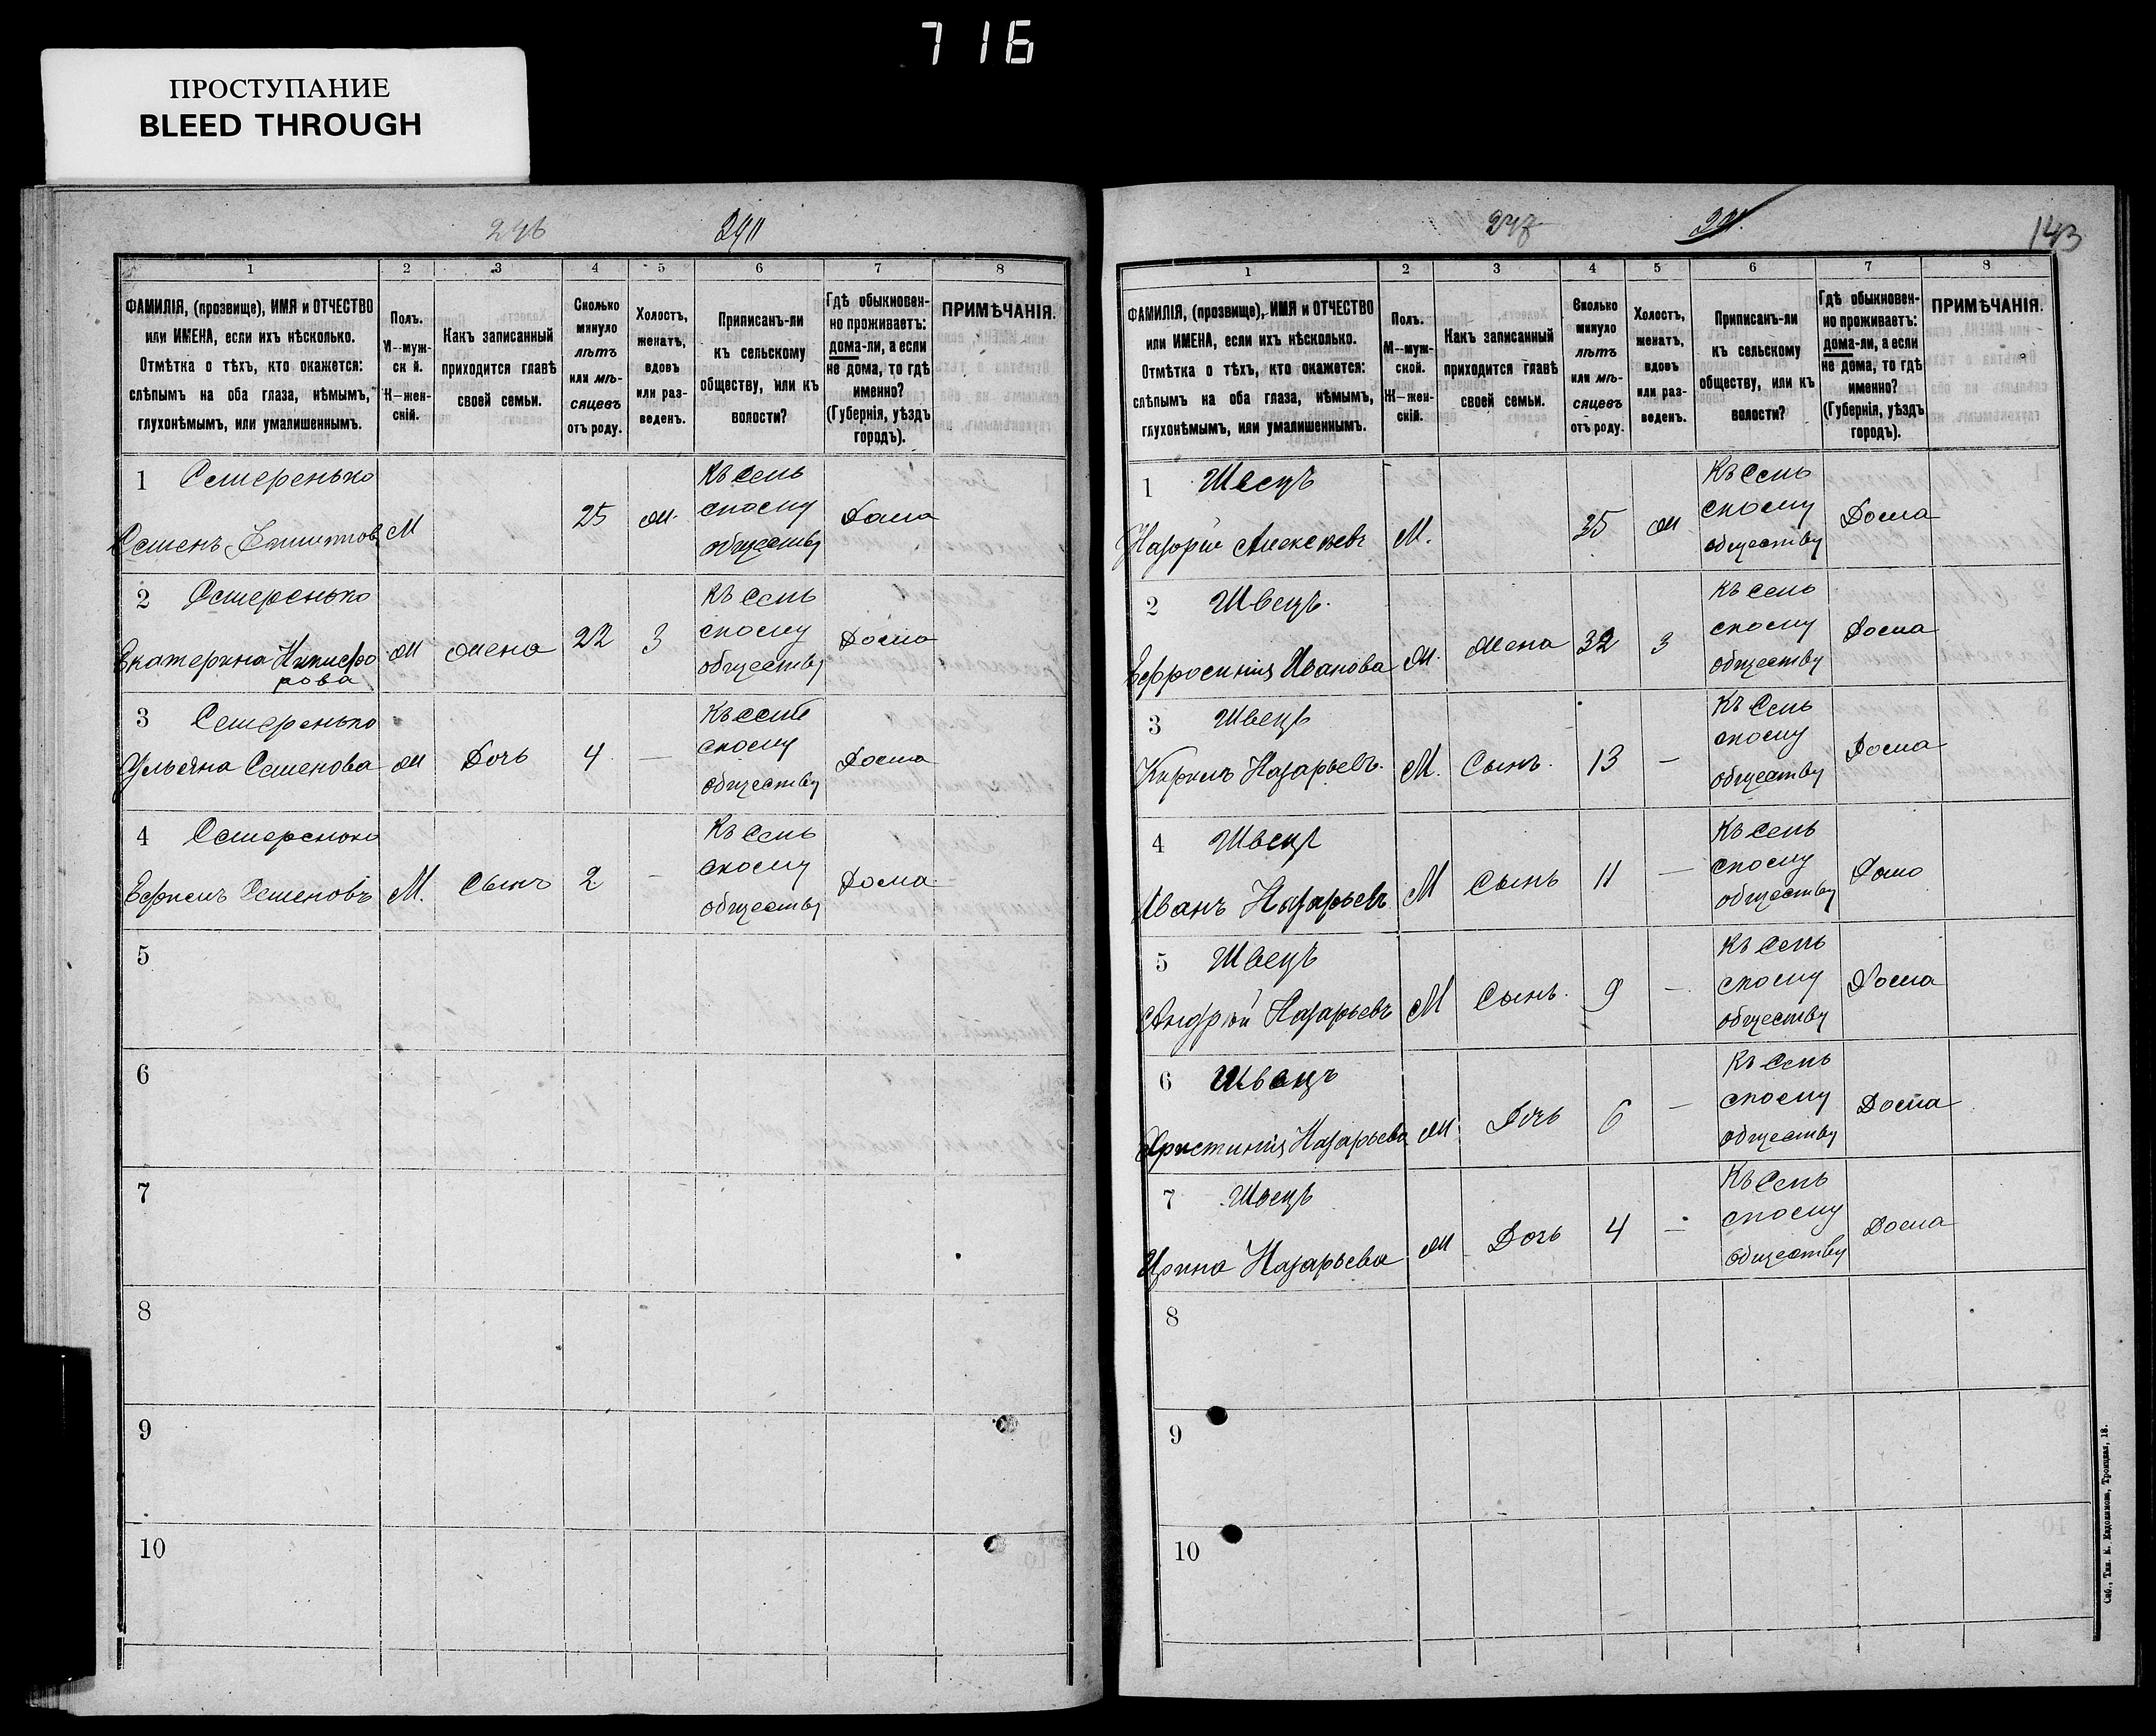 716
ПРОСТУПАНИЕ
BLEED THROUGH
246
241
1 2 3 4 5 6 7 8
ФАМИЛІЯ, (прозвище), ИМЯ и ОТЧЕСТВО или ИМЕНА, если ихъ нѣсколько. Отмѣтка о тѣхъ, кто окажется: слѣпымъ на оба глаза, нѣмымъ, глухонѣмымъ, или умалишеннымъ.
Полъ. М—муж- ск й. Ж—жен- скій.
Какъ записанный приходится главѣ своей семьи.
Сколько минуло лѣтъ или мѣ- сяцевъ отъ роду.
Холостъ, женатъ, вдовъ или раз- веденъ.
Приписанъ-ли къ сельскому обществу, или къ волости?
Гдѣ обыкновен- но проживаетъ: дома-ли, а если не дома, то гдѣ именно? (Губернія, уѣздъ городъ).
ПРИМѢЧАНІЯ.
1 Семеренько
Семенъ М 25 ж. Къ сель скому обществу Дома
2 Семеренько
Екатерина Никифо рова ж жена 22 З Къ сель скому обществу Дома
3 Семеренько
Ульяна Семенова ж Дочь 4 — Къ сель скому обществу Дома
4 Семеренько
Ефимъ Семеновъ М. Сынъ 2 — Къ сель скому обществу Дома
5
6
7
8
9
10
247
143
1 2 3 4 5 6 7 8
ФАМИЛІЯ, (прозвище), ИМЯ и ОТЧЕСТВО или ИМЕНА, если ихъ нѣсколько. Отмѣтка о тѣхъ, кто окажется: слѣпымъ на оба глаза, нѣмымъ, глухонѣмымъ, или умалишеннымъ.
Полъ. М—муж- ской. Ж—жен- скій.
Какъ записанный приходится главѣ своей семьи.
Сколько минуло лѣтъ или мѣ- сяцевъ отъ роду.
Холостъ, женатъ, вдовъ или раз- веденъ.
Приписанъ-ли къ сельскому обществу, или къ волости?
Гдѣ обыкновен- но проживаетъ: дома-ли, а если не дома, то гдѣ именно? (Губернія, уѣздъ городъ).
ПРИМѢЧАНІЯ.
1 Швецъ
Назорій Алексѣевъ М. 35 ж Къ сель скому обществу Дома
2 Швецъ.
Ефросинія Иванова ж. жена 32 З Къ сель скому обществу Дома
3 Швецъ
Кирилъ Назарьевъ. М. Сынъ. 13 — Къ сель скому обществу Дома
4 Швецъ
Иванъ Назарьевъ М Сынъ 11 — Къ сель скому обществу Дома
5 Швецъ
Андрѣй Назарьевъ М Сынъ. 9 — Къ сель скому обществу Дома
6 Швецъ
Христинія Назарьева ж. Дочь 6 — Къ сель скому обществу Дома
7 Швецъ
Ирина Назарьева ж Дочь 4 — Къ сель скому обществу Дома
8
9
10